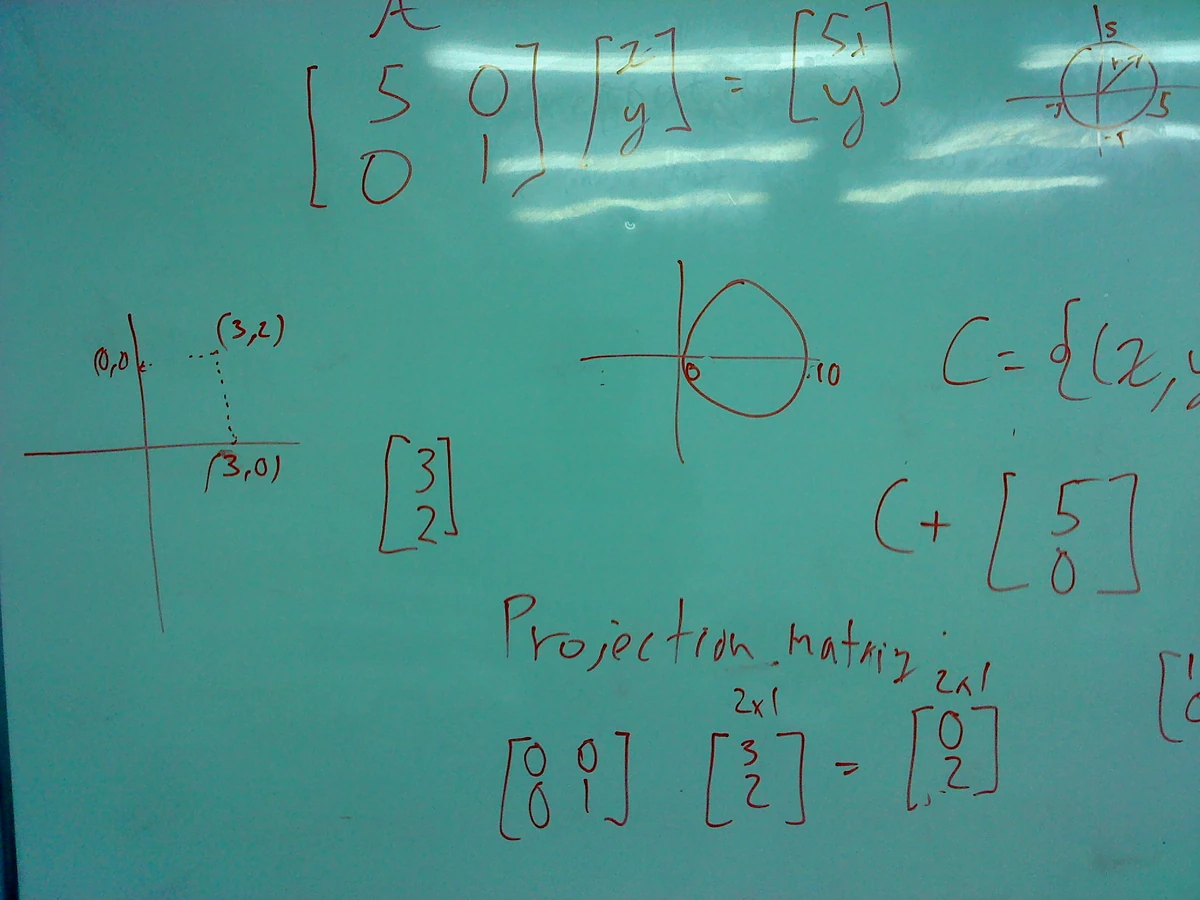 A
[5 0; 0 1] [x; y] = [5x; y]
5
r
5
-5
(3,2)
(0,0
(3,0)
[3; 2]
0
10
C = {(x, y
C + [5; 0]
Projection matrix
2x1
2x1
[0 0; 0 1] [3; 2] = [0; 2]